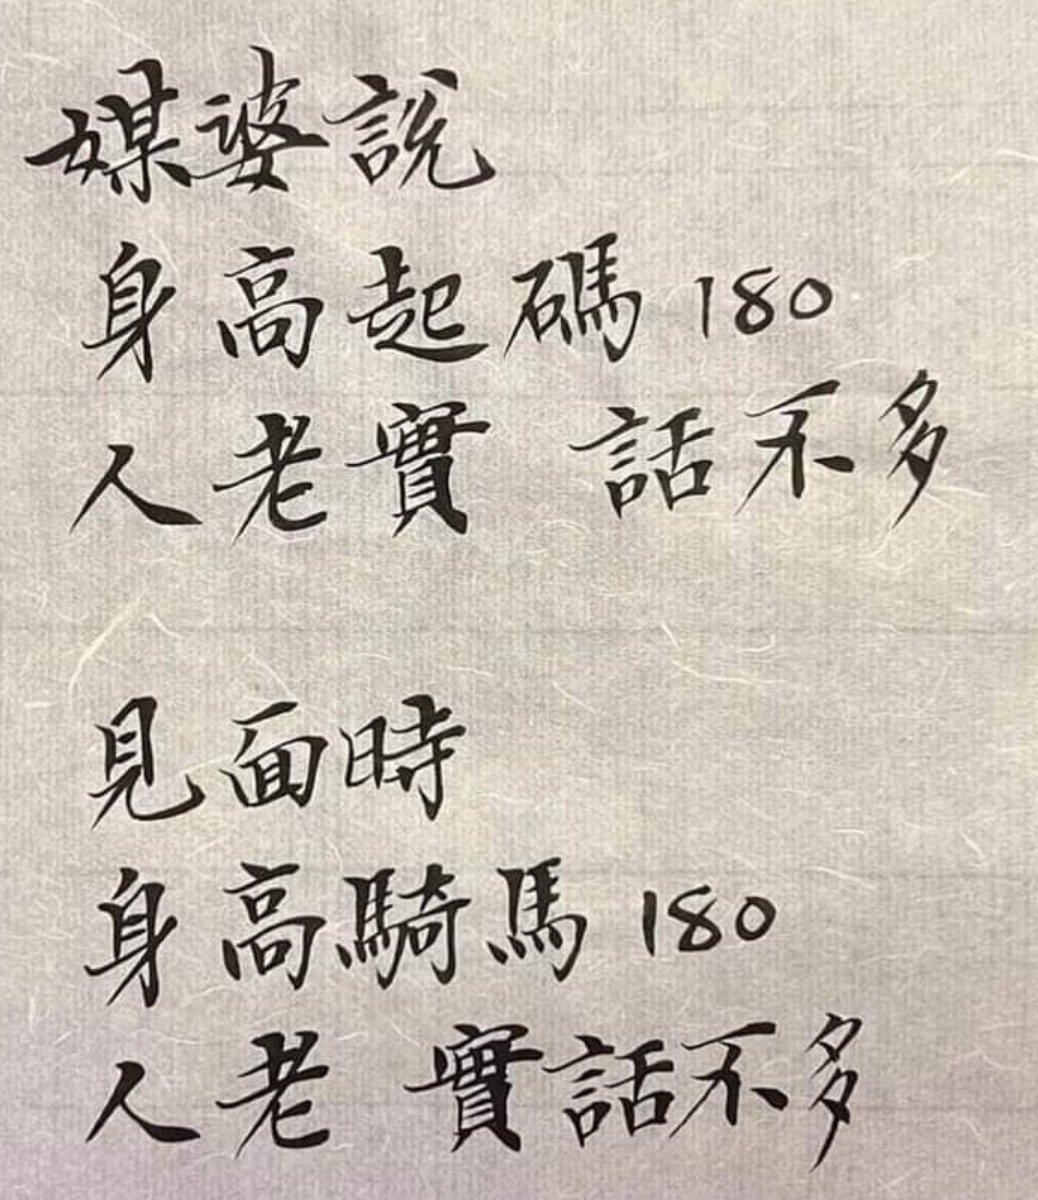 媒婆說
身高起碼 180
人老實 話不多
見面時
身高騎馬 180
人老 實話不多